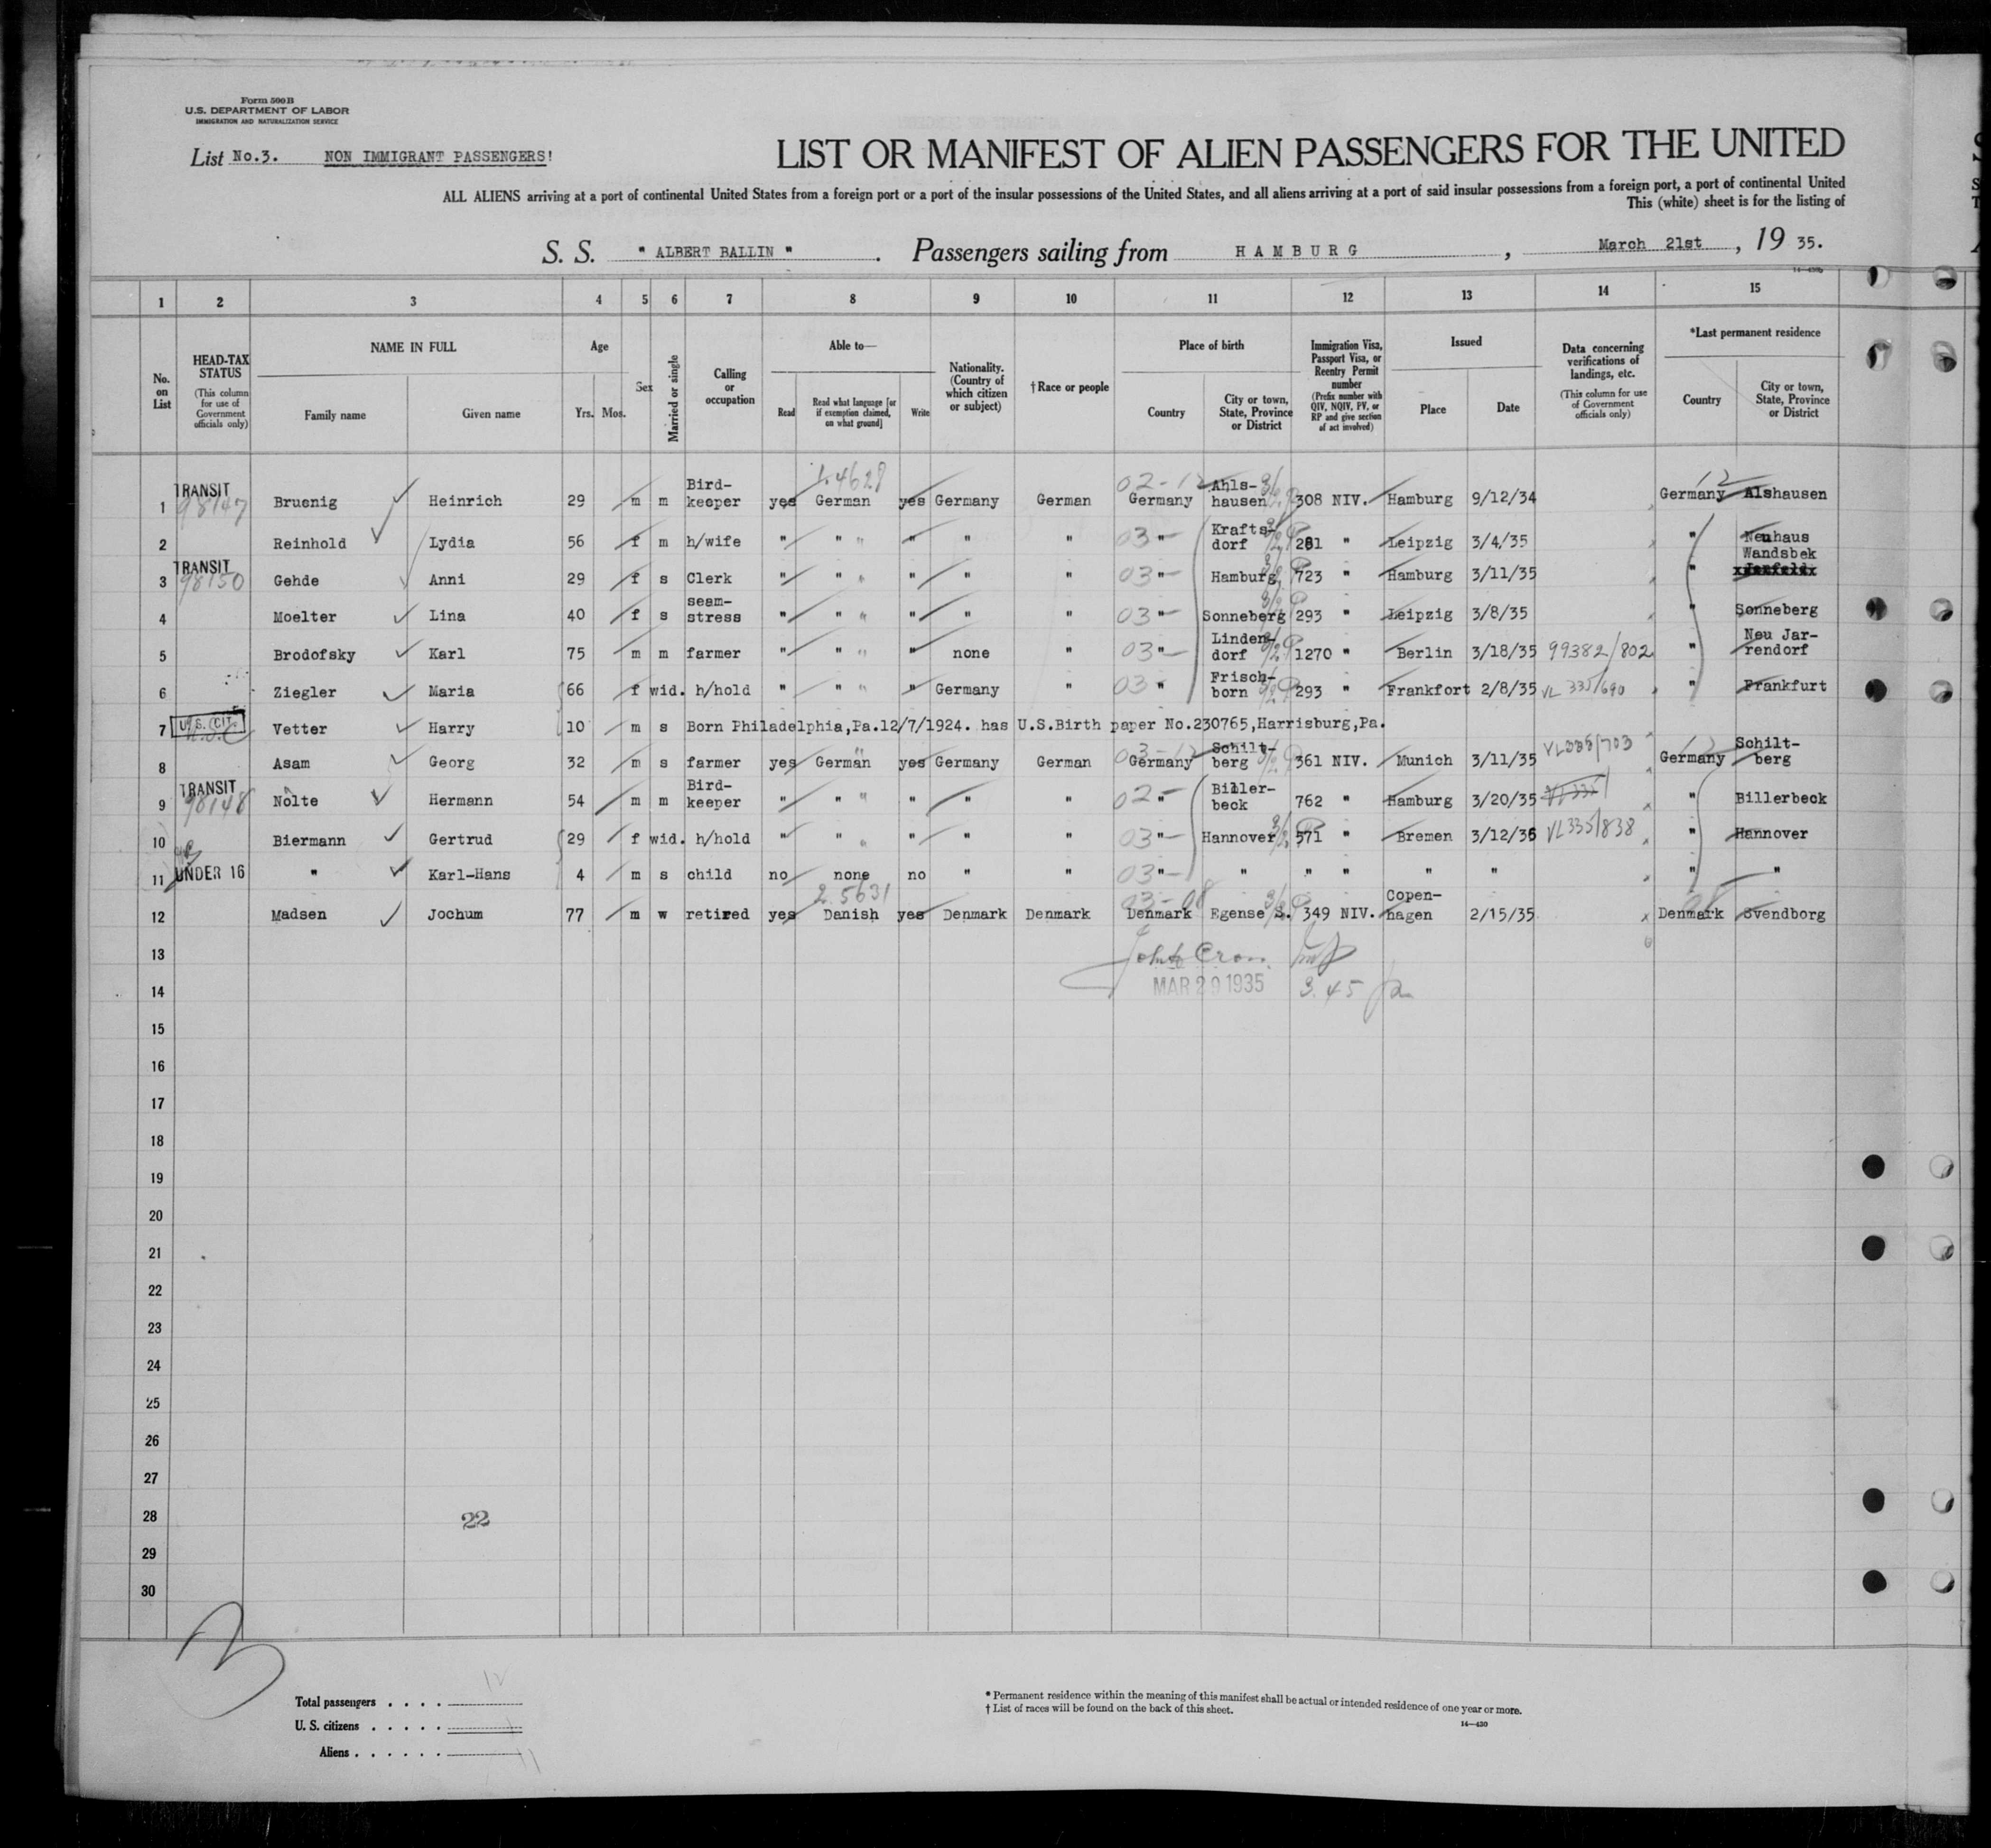 Form 500 B
U.S. DEPARTMENT OF LABOR
IMMIGRATION AND NATURALIZATION SERVICE
List No.3. NON IMMIGRANT PASSENGERS!
LIST OR MANIFEST OF ALIEN PASSENGERS FOR THE UNITED
ALL ALIENS arriving at a port of continental United States from a foreign port or a port of the insular possessions of the United States, and all aliens arriving at a port of said insular possessions from a foreign port, a port of continental United
This (white) sheet is for the listing of
S. S. " ALBERT BALLIN " . Passengers sailing from HAMBURG , March 21st , 19 35.
1 2 3 4 5 6 7 8 9 10 11 12 13 14 15
No. on List
HEAD-TAX STATUS (This column for use of Government officials only)
NAME IN FULL
Family name Given name
Age
Yrs. Mos.
Sex
Married or single
Calling or occupation
Able to—
Read Read what language [or if exemption claimed, on what ground] Write
Nationality. (Country of which citizen or subject)
†Race or people
Place of birth
Country City or town, State, Province or District
Immigration Visa, Passport Visa, or Reentry Permit number (Prefix number with QIV, NQIV, PV, or RP and give section of act involved)
Issued
Place Date
Data concerning verifications of landings, etc. (This column for use of Government officials only)
*Last permanent residence
Country City or town, State, Province or District
1 TRANSIT 98147 Bruenig Heinrich 29 m m Bird-keeper yes German yes Germany German Germany Ahls-hausen 308 NIV. Hamburg 9/12/34 Germany Alshausen
2 Reinhold Lydia 56 f m h/wife " " " " " 03 " Krafts-dorf 281 " Leipzig 3/4/35 " Neuhaus
3 TRANSIT 98150 Gehde Anni 29 f s Clerk " " " " " 03 " Hamburg 723 " Hamburg 3/11/35 " Wandsbek
4 Moelter Lina 40 f s seam-stress " " " " " 03 " Sonneberg 293 " Leipzig 3/8/35 " Sonneberg
5 Brodofsky Karl 75 m m farmer " " " none " 03 " Linden-dorf 1270 " Berlin 3/18/35 99382/802 " Neu Jar-rendorf
6 Ziegler Maria 66 f wid. h/hold " " " Germany " 03 " Frisch-born 293 " Frankfort 2/8/35 VL 335/690 " Frankfurt
7 U.S. CIT. Vetter Harry 10 m s Born Philadelphia,Pa.12/7/1924. has U.S.Birth paper No.230765,Harrisburg,Pa.
8 Asam Georg 32 m s farmer yes German yes Germany German Germany Schilt-berg 361 NIV. Munich 3/11/35 VL335/703 Germany Schilt-berg
9 TRANSIT 98148 Nolte Hermann 54 m m Bird-keeper " " " " " 02 " Biller-beck 762 " Hamburg 3/20/35 " Billerbeck
10 Biermann Gertrud 29 f wid. h/hold " " " " " 03 " Hannover 571 " Bremen 3/12/35 VL335/838 " Hannover
11 UNDER 16 " Karl-Hans 4 m s child no none no " " 03 " " " " " " " "
12 Madsen Jochum 77 m w retired yes Danish yes Denmark Denmark Denmark Egense S. 349 NIV. Copen-hagen 2/15/35 Denmark Svendborg
13
14 MAR 20 1935 3.45
15
16
17
18
19
20
21
22
23
24
25
26
27
28 22
29
30
3
Total passengers . . . . 12
U. S. citizens . . . . . 1
Aliens . . . . . . 11
* Permanent residence within the meaning of this manifest shall be actual or intended residence of one year or more.
† List of races will be found on the back of this sheet.
14—430